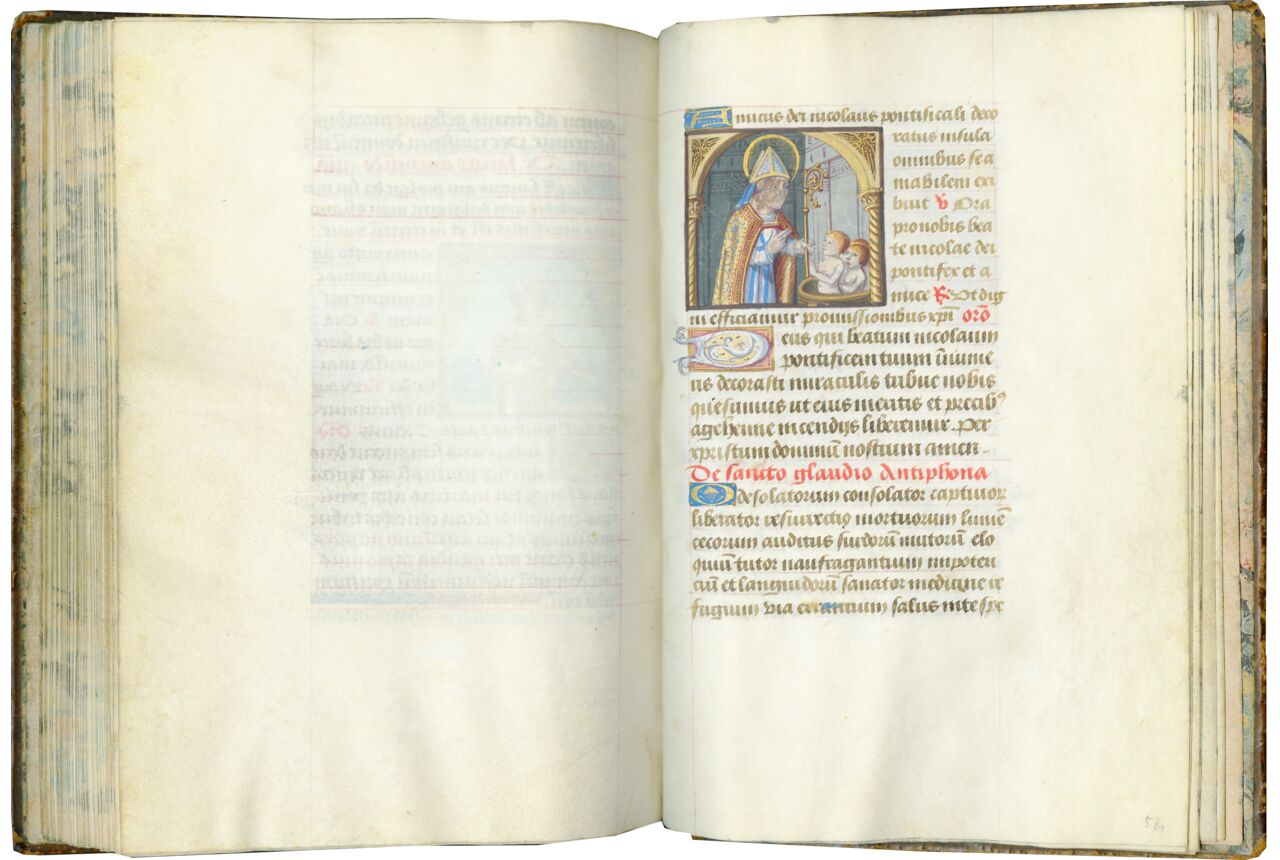 Amicus dei nicolaus pontificali deco
ratus insula
omnibus se a
mabilem exi
buit V Ora
pro nobis bea
te nicolae dei
pontifex et a
mice R Vt dig
ni efficiamur promissionibus xpi orō
Deus qui beatum nicolaum
pontificem tuum īnume
ris decorasti miraculis tribue nobis
quesumus ut eius meritis et precibꝰ
a gehenne incendijs liberemur. Per
xpristum dominū nostrum amen.
De sancto glaudio Antiphona
O desolatorum consolator captiuorū
liberator resurrectio mortuorum lumē
cecorum auditus surdorū mutorū elo
quiū tutor naufragantium impoten
ciū et languidorū sanator medicine re
fugium via errantium salus inte spe
54